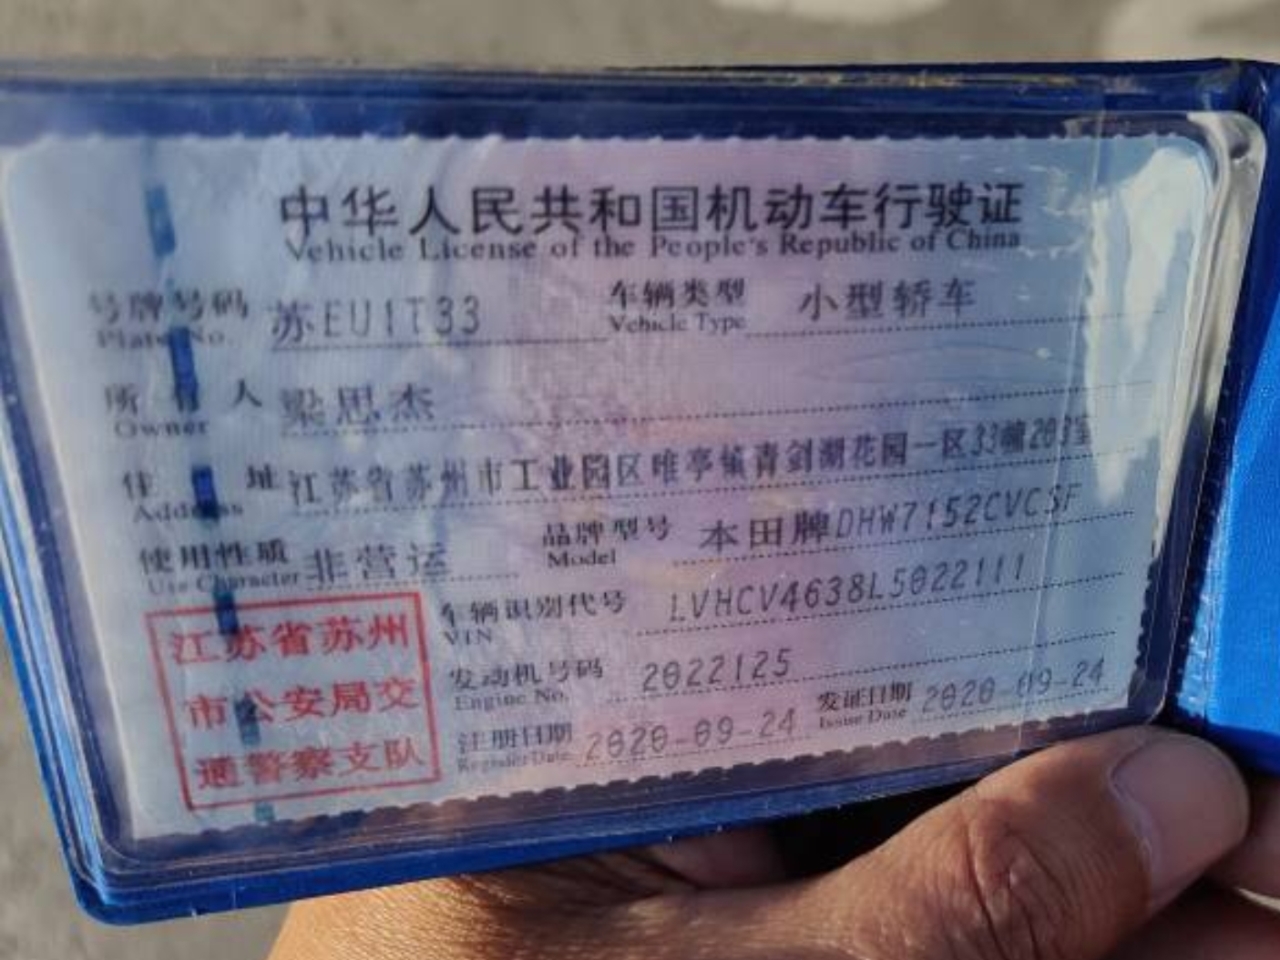 中华人民共和国机动车行驶证
Vehicle License of the People's Republic of China
号牌号码 苏EU1T33 车辆类型 小型轿车
Plate No. Vehicle Type
所有人 梁思杰
Owner
住址 江苏省苏州市工业园区唯亭镇青剑湖花园一区33幢203室
Address
使用性质 非营运 品牌型号 本田牌DHW7152CVCSF
Use Character Model
车辆识别代号 LVHCV4638L5022111
VIN
发动机号码 2022125 发证日期 2020-09-24
Engine No. Issue Date
注册日期 2020-09-24
Register Date
江苏省苏州
市公安局交
通警察支队